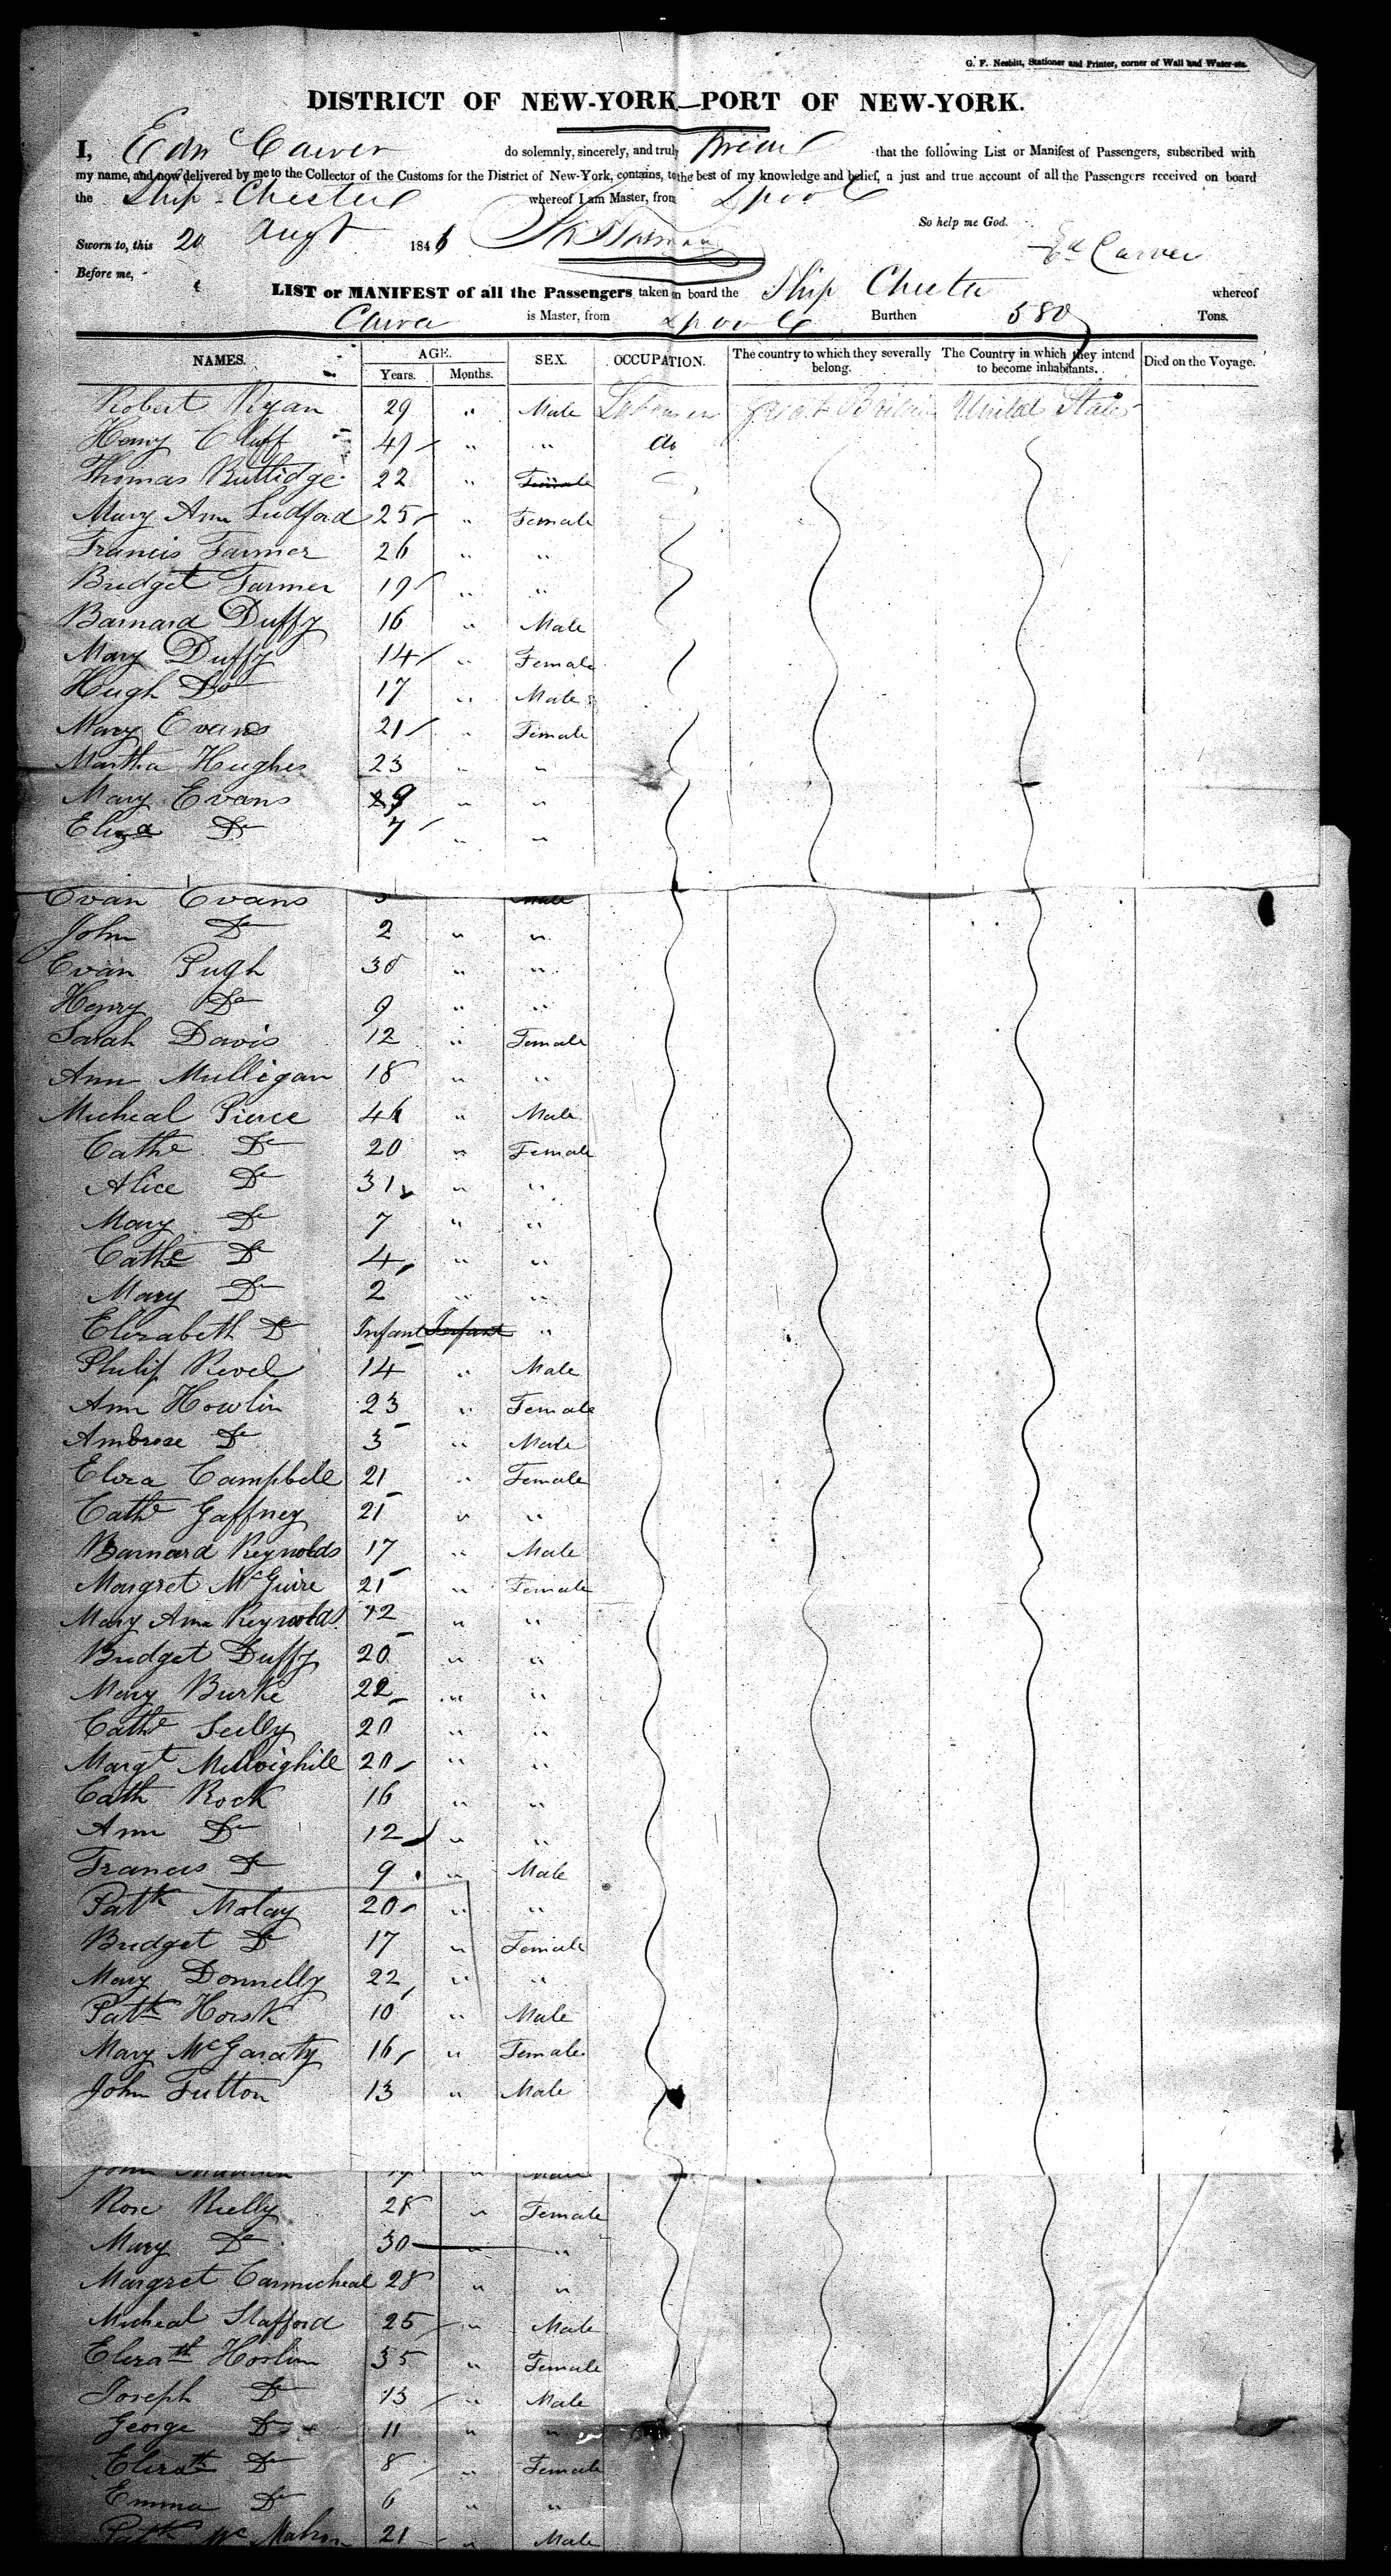 G. F. Nesbitt, Stationer and Printer, corner of Wall and Water-sts.
DISTRICT OF NEW-YORK—PORT OF NEW-YORK.
I, Edw Carver do solemnly, sincerely, and truly swear that the following List or Manifest of Passengers, subscribed with
my name, and now delivered by me to the Collector of the Customs for the District of New-York, contains, to the best of my knowledge and belief, a just and true account of all the Passengers received on board
the Ship Chester whereof I am Master, from Lpool
So help me God.
Sworn to, this 20 Augt 1846
Ed Carver
Before me,
LIST or MANIFEST of all the Passengers taken on board the Ship Chester whereof
Carver is Master, from Lpool Burthen 580 Tons.
NAMES. AGE. SEX. OCCUPATION. The country to which they severally belong. The Country in which they intend to become inhabitants. Died on the Voyage.
Years. Months.
Robert Ryan 29 " Male Labourer Great Britain United States
Henry Cluff 49 " " do
Thomas Ruttidge 22 " Female
Mary Ann Ludford 25 " Female
Francis Farmer 26 " "
Bridget Farmer 19 " "
Barnard Duffy 16 " Male
Mary Duffy 14 " Female
Hugh Do 17 " Male
Mary Evans 21 " Female
Martha Hughes 23 " "
Mary Evans 29 " "
Eliza Do 7 " "
Evan Evans Male
John Do 2 " "
Evan Pugh 30 " "
Henry Do 9 " "
Sarah Davis 12 " Female
Ann Mulligan 18 " "
Micheal Pierce 46 " Male
Cathe Do 20 " Female
Alice Do 31 " "
Mary Do 7 " "
Cathe Do 4 " "
Mary Do 2 " "
Elizabeth Do Infant Infant "
Philip Revel 14 " Male
Ann Howlin 23 " Female
Ambrose Do 3 " Male
Eliza Campbell 21 " Female
Cathe Gaffney 21 " "
Barnard Reynolds 17 " Male
Margret McGuire 21 " Female
Mary Ann Reynolds 12 " "
Bridget Duffy 20 " "
Mary Burke 22 " "
Cathe Scully 20 " "
Margt 20 " "
Cath Rock 16 " "
Ann Do 12 " "
Francis Do 9 " Male
Patk Molay 20 " "
Bridget Do 17 " Female
Mary Donnelly 22 " "
Patk Horsk 10 " Male
Mary McGaraty 16 " Female
John Fulton 13 " Male
John
Rose Rielly 28 " Female
Mary Do 30 " "
Margret Carmicheal 28 " "
Micheal Stafford 25 " Male
Elizath Hoslim 35 " Female
Joseph Do 13 " Male
George Do 11 " "
Elizath Do 8 " Female
Emma Do 6 " "
Patk McMahon 21 " Male